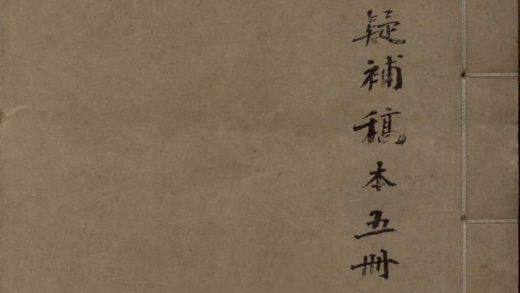 疑補稿本五冊